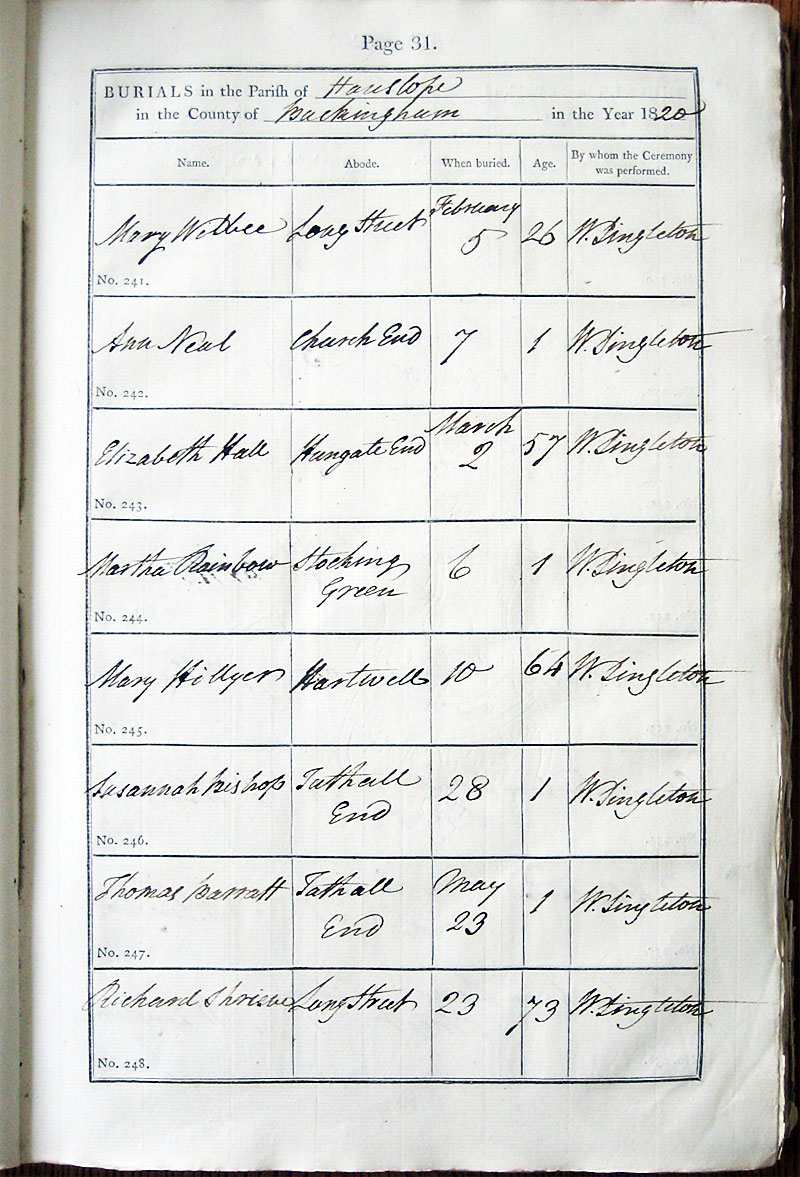 Page 31.
BURIALS in the Parish of Hanslope
in the County of Buckingham in the Year 1820
Name. Abode. When buried. Age. By whom the Ceremony was performed.
Mary Webbee Long Street February 5 26 W. Singleton
No. 241.
Ann Neal Church End 7 1 W. Singleton
No. 242.
Elizabeth Hall Hungate End March 2 57 W. Singleton
No. 243.
Martha Rainbow Stocking Green 6 1 W. Singleton
No. 244.
Mary Hillyer Hartwell 10 64 W. Singleton
No. 245.
Susannah Bishop Tathall End 28 1 W. Singleton
No. 246.
Thomas Barratt Tathall End May 23 1 W. Singleton
No. 247.
Richard Long Street 23 73 W. Singleton
No. 248.